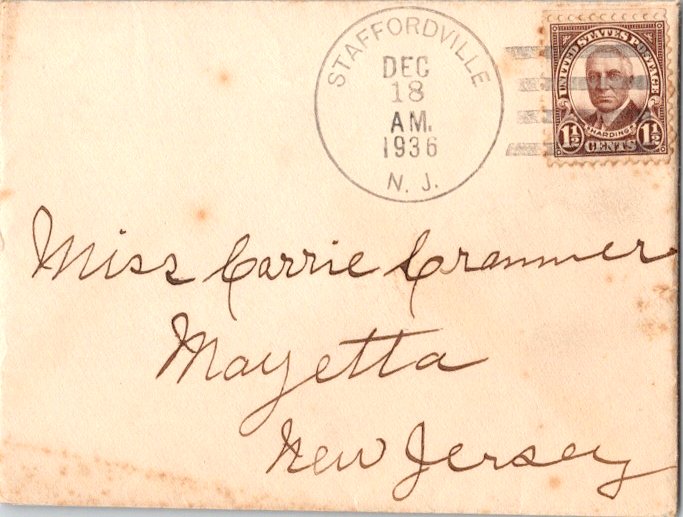 STAFFORDVILLE
DEC
18
AM.
1936
N. J.
UNITED STATES POSTAGE
HARDING
1½ CENTS 1½
Miss Carrie Cranmer
Mayetta
New Jersey